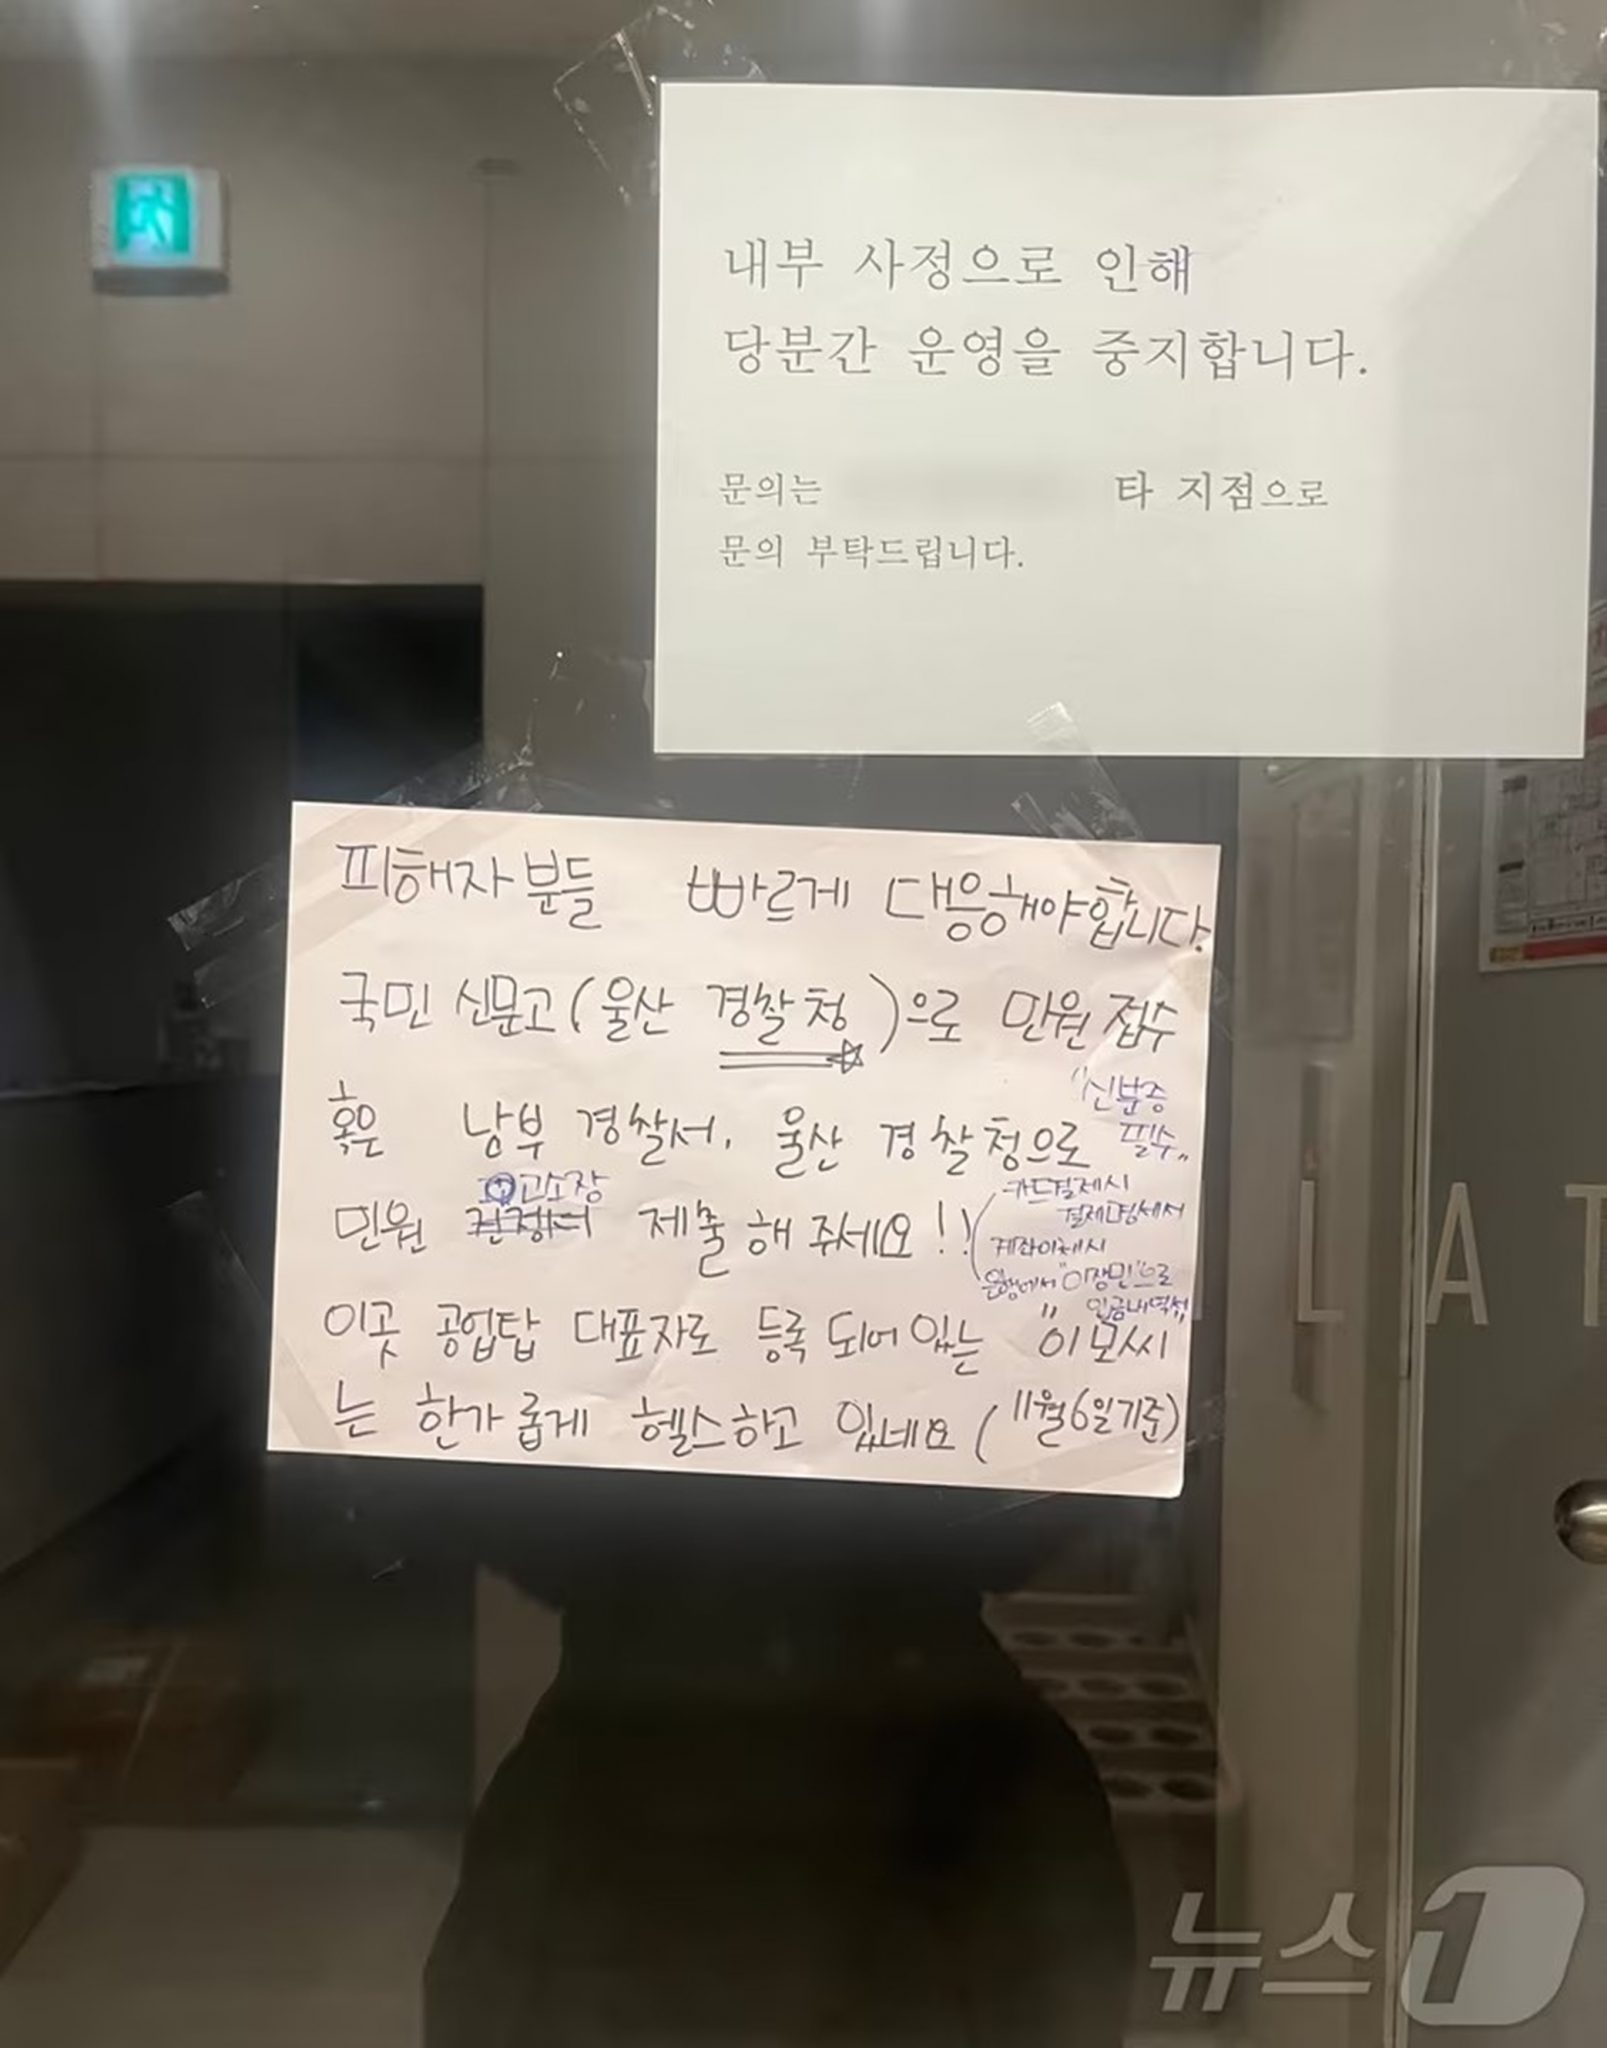 내부 사정으로 인해
당분간 운영을 중지합니다.
문의는 타 지점으로
문의 부탁드립니다.
피해자분들 빠르게 대응해야합니다.
국민 신문고(울산 경찰청)으로 민원 접수
혹은 남부 경찰서, 울산 경찰청으로
"신분증
필수"
고소장
민원 제출해 주세요!!
카드결제시
결제명세서
계좌이체시
은행에서 "이장민"으로
입금내역서
이곳 공업탑 대표자로 등록 되어 있는 "이모씨"
는 한가롭게 헬스하고 있네요(11월6일기준)
LAT
뉴스1